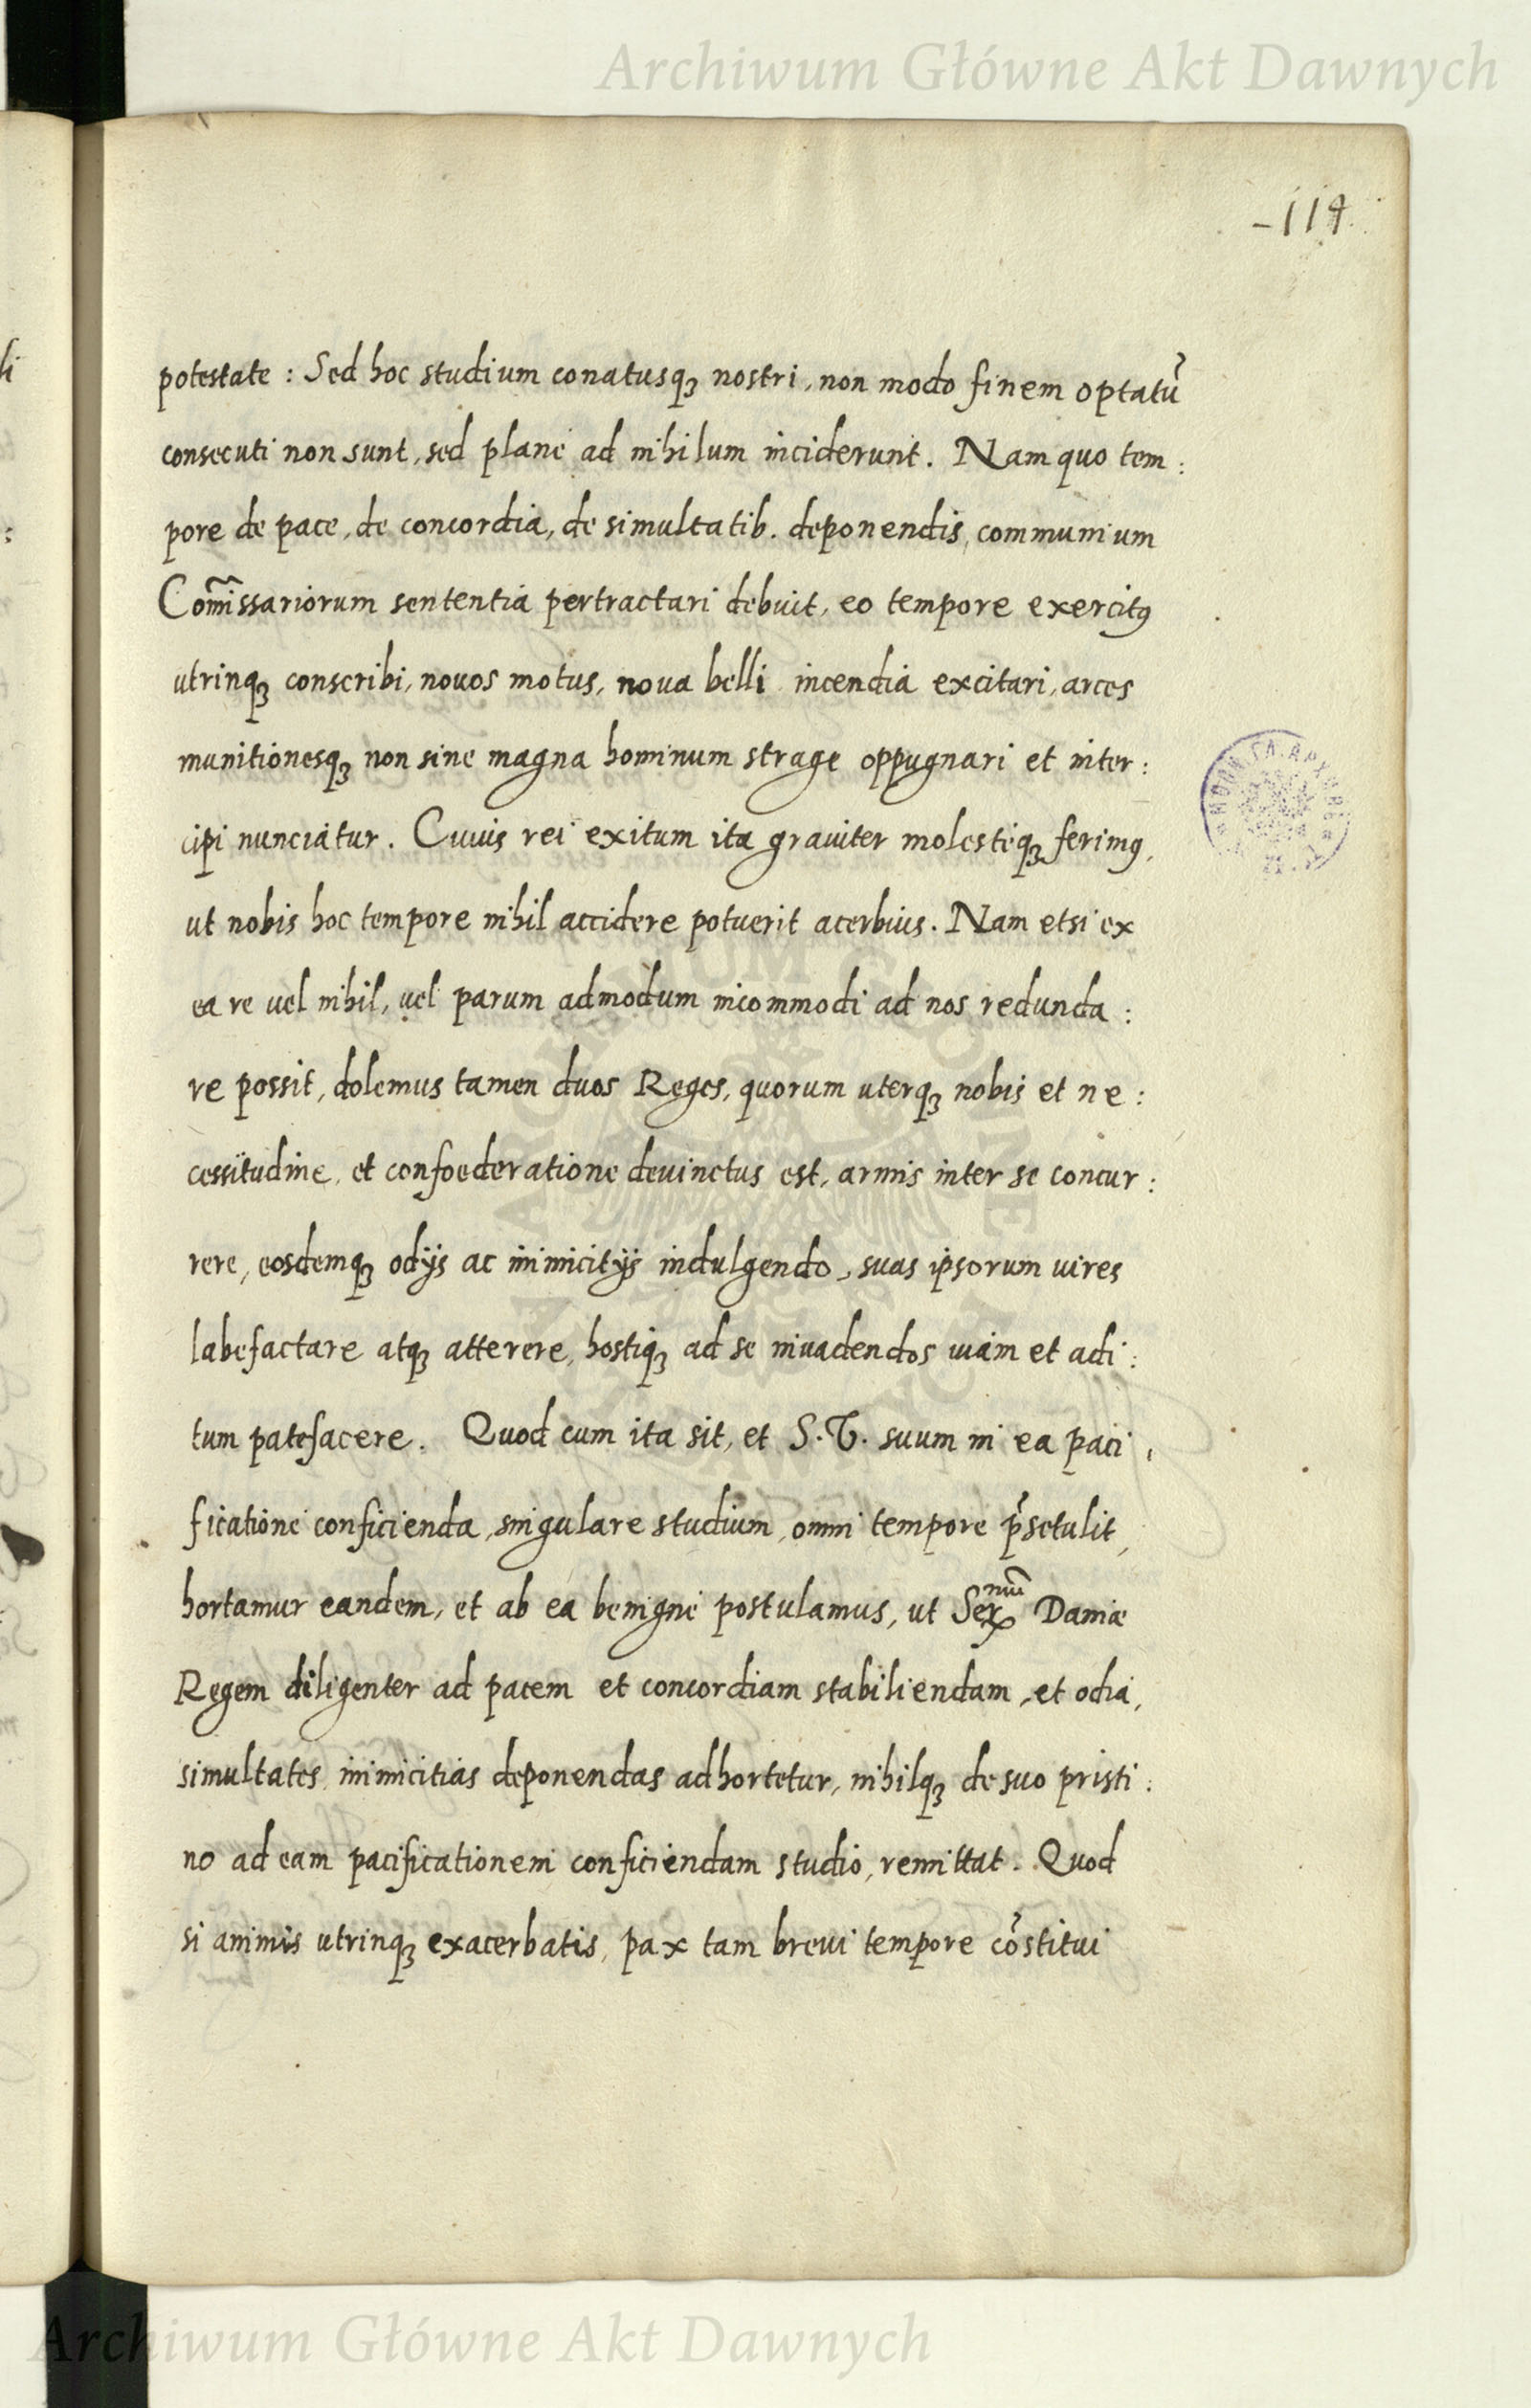 Archiwum Główne Akt Dawnych
-114
potestate : Sed hoc studium conatusqꝫ nostri, non modo finem optatũ
consecuti non sunt, sed plane ad nihilum inciderunt. Nam quo tem:
pore de pace, de concordia, de simultatib. deponendis, communium
Com̃issariorum sententia pertractari debuit, eo tempore exercitꝰ
utrinqꝫ conscribi, nouos motus, noua belli incendia excitari, arces
munitionesqꝫ non sine magna hominum strage oppugnari et inter:
cipi nunciatur. Cuius rei exitum ita grauiter molesteqꝫ ferimꝰ,
ut nobis hoc tempore nihil accidere potuerit acerbius. Nam etsi ex
ea re uel nihil, uel parum admodum incommodi ad nos redunda:
re possit, dolemus tamen duos Reges, quorum uterqꝫ nobis et ne:
cessitudine, et confoederatione deuinctus est, armis inter se concur:
rere, eosdemqꝫ odijs ac inimicitijs indulgendo, suas ipsorum uires
labefactare atqꝫ atterere, hostiqꝫ ad se inuadendos uiam et adi:
tum patefacere. Quod cum ita sit, et S.V. suum in ea paci,
ficatione conficienda, singulare studium, omni tempore p̃setulit,
hortamur eandem, et ab ea benigne postulamus, ut Serᵐᵘ̃ Daniæ
Regem diligenter ad pacem et concordiam stabiliendam, et odia,
simultates, inimicitias deponendas adhortetur, nihilqꝫ de suo pristi:
no ad eam pacificationem conficiendam studio, remittat. Quod
si animis utrinqꝫ exacerbatis, pax tam breui tempore cõstitui
Archiwum Główne Akt Dawnych